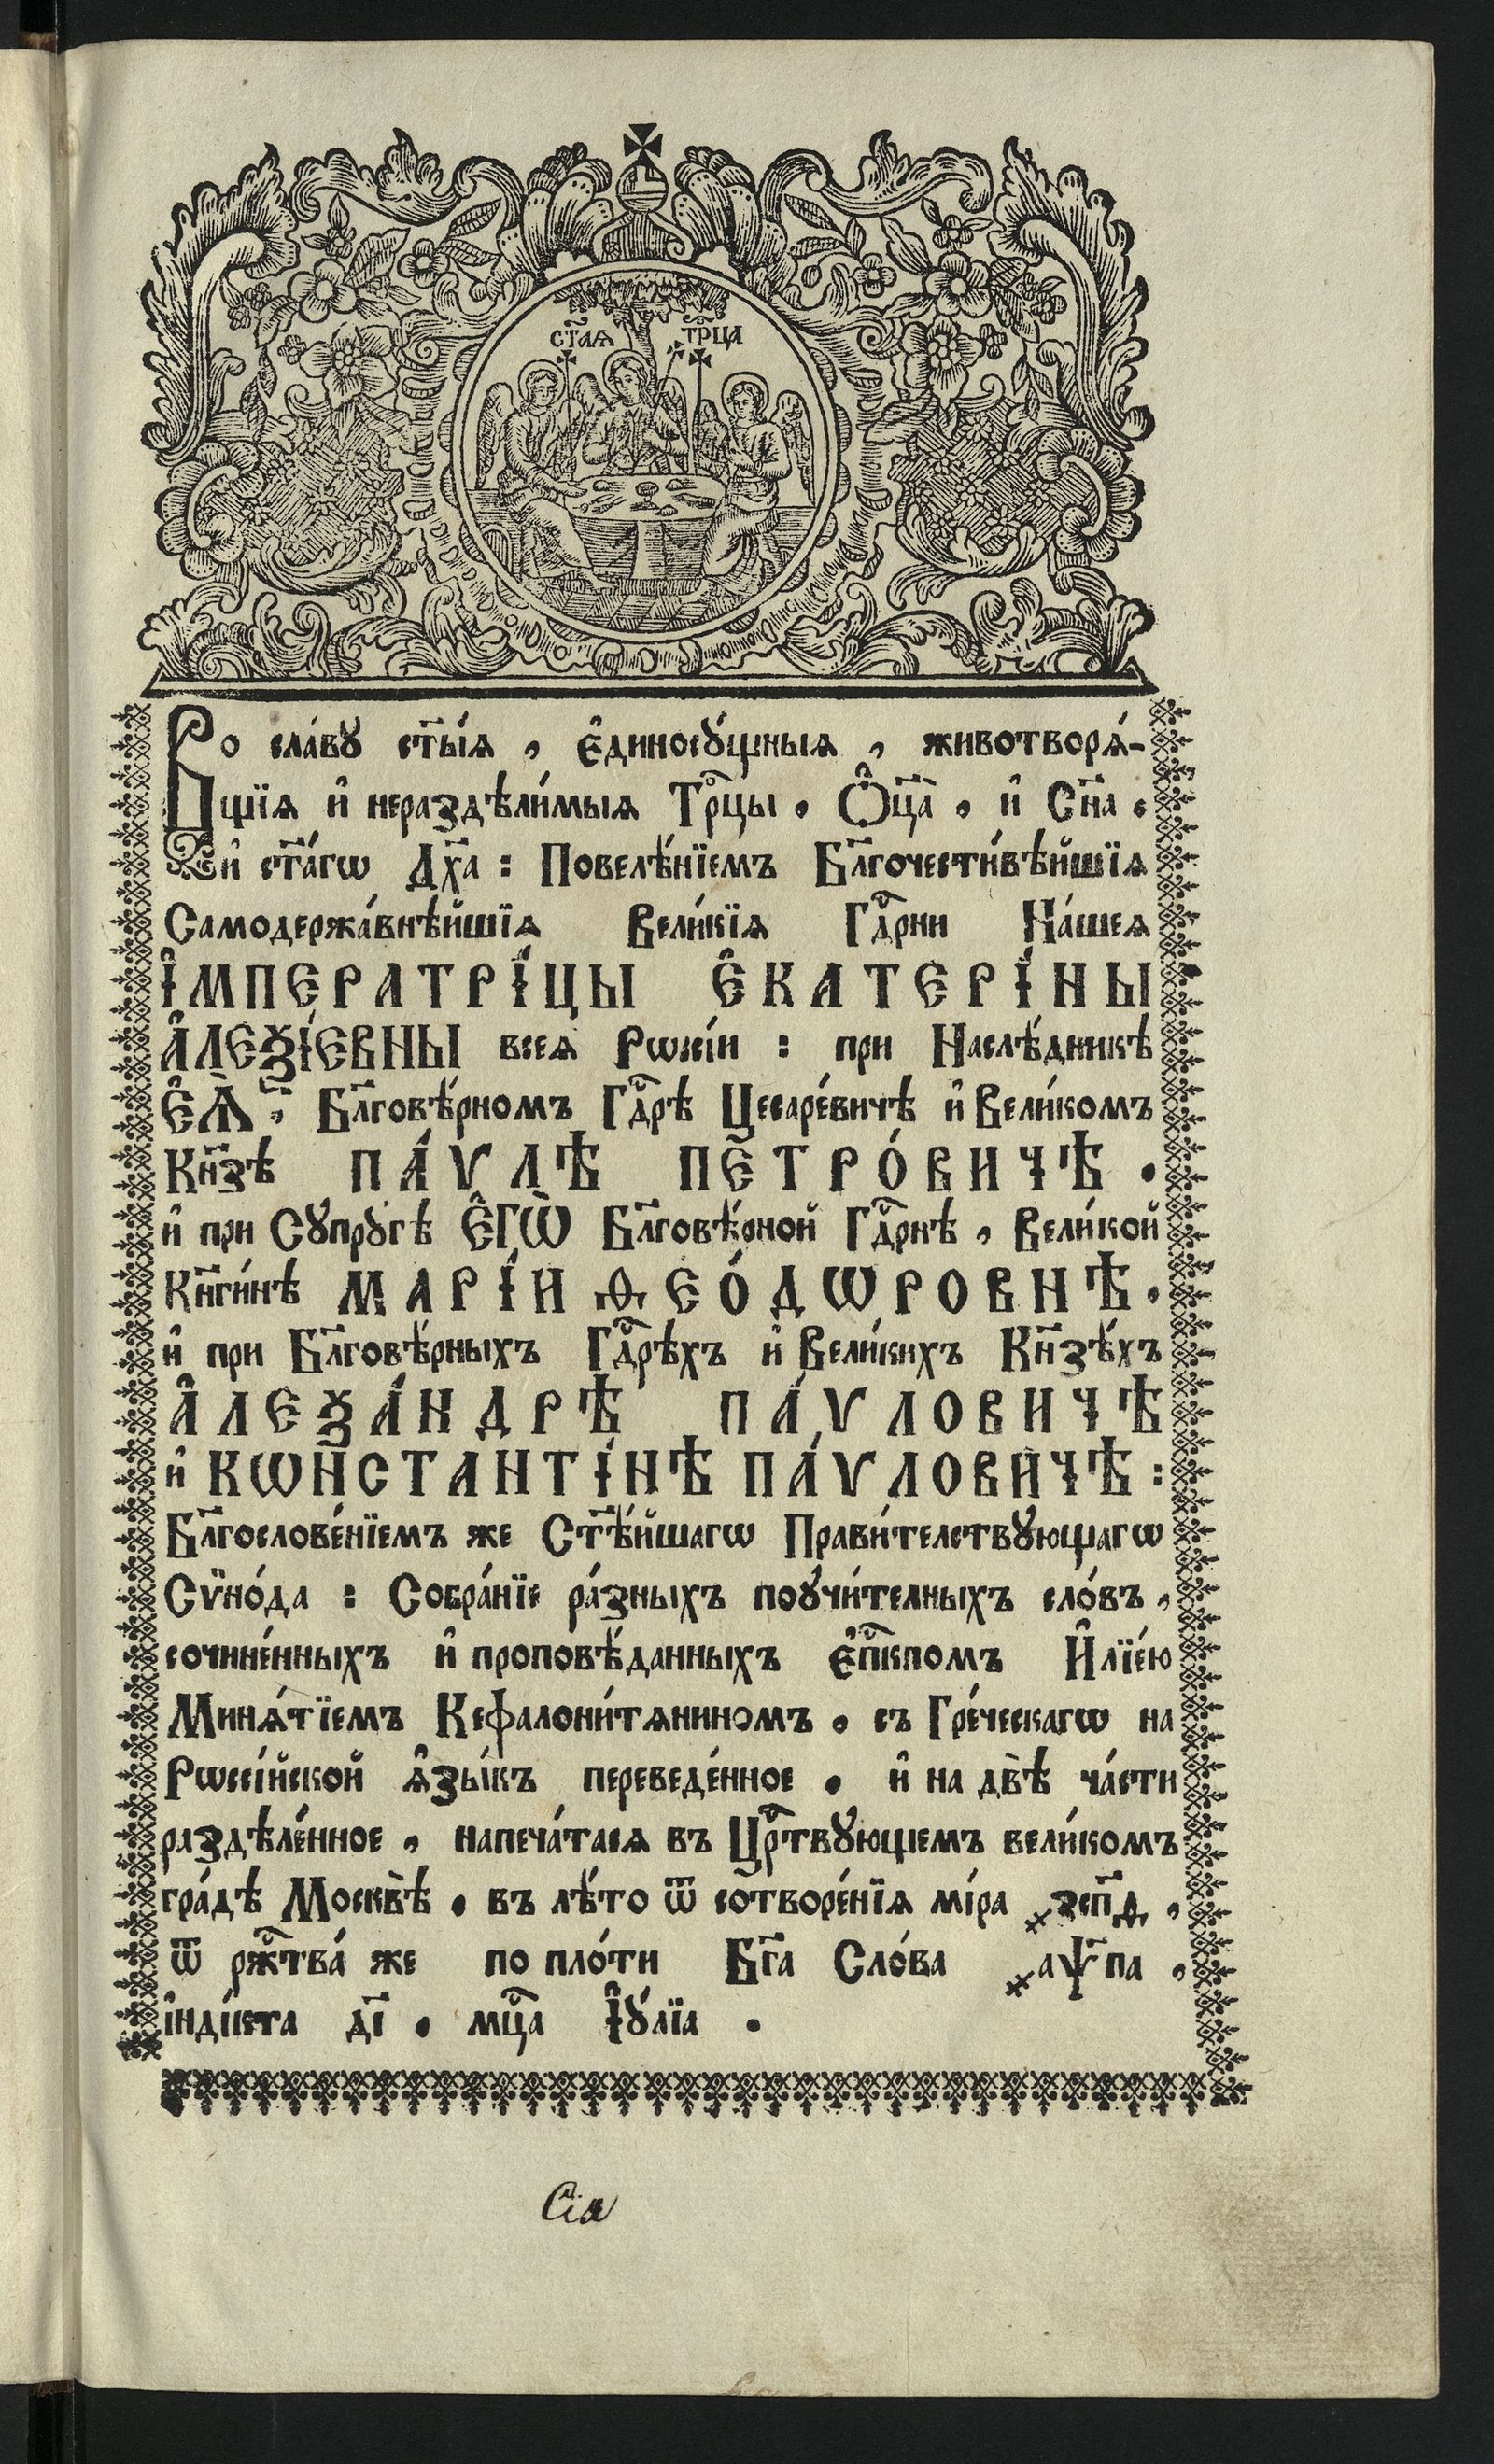 ст҃ая трⷪ҇ца
Во сла́вꙋ ст҃ы́ѧ , є҆диносꙋ́щныѧ , животворѧ́-
щїѧ и҆ нераздѣли́мыѧ Трⷪ҇цы . Ѻ҆ц҃а̀ . и҆ Сн҃а .
и҆ ст҃а́гѡ Дх҃а : Повелѣ́нїемъ Бл҃гочести́вѣйшїѧ
Самодержа́внѣйшїѧ Вели́кїѧ Гдⷭ҇рни На́шеѧ
І҆МПЕРАТРІ́ЦЫ Є҆КАТЕРІ́НЫ
А҆ЛЕѮІ́ЕВНЫ всеѧ Рѡссі́и : при Наслѣ́дникѣ
Є҆Ѧ̀ , Бл҃говѣ́рномъ Гдⷭ҇рѣ Цесаре́вичѣ и҆ Вели́комъ
Кн҃зѣ ПА́ѴЛѢ ПЕТРО́ВИЧѢ .
и҆ при Сꙋпрꙋгѣ Є҆ГѠ̀ Бл҃говѣ́рной Гдⷭ҇рнѣ , Вели́кой
Кн҃ги́нѣ МАРІ́И ѲЕО́ДѠРОВНѢ .
и҆ при Бл҃говѣ́рныхъ Гдⷭ҇рѣхъ и҆ Вели́кихъ Кн҃зѣ́хъ
А҆ЛЕѮА́НДРѢ ПА́ѴЛОВИЧѢ
и҆ КѠНСТАНТІ́НѢ ПА́ѴЛОВИЧѢ :
Бл҃гослове́нїемъ же Ст҃ѣ́йшагѡ Прави́телствꙋющагѡ
Сѷно́да : Собра́нїе ра́зныхъ поꙋчи́телныхъ сло́въ ,
сочине́нныхъ и҆ проповѣ́данныхъ є҆пⷭ҇кпомъ И҆лїе́ю
Минѧ́тїемъ Кефалони́тѧниномъ . съ Гре́ческагѡ на
Рѡссі́йской ѧ҆зы́къ переведе́нное . и҆ на двѣ̀ ча́сти
раздѣле́нное , напеча́тасѧ въ Црⷭ҇твꙋющемъ вели́комъ
гра́дѣ Москвѣ̀ . въ лѣ́то ѿ сотворе́нїѧ мі́ра ҂зсп҃д ,
ѿ рж҇тⷭва́ же по пло́ти Бг҃а Сло́ва ҂аѱ҃па ,
і҆нді́кта д҃і . мцⷭ҇а І҆ꙋ́лїа .
Сїя